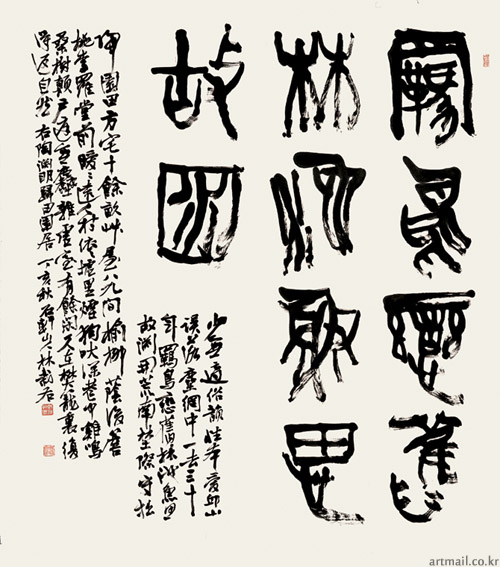 羈鳥戀舊
林池魚思
故淵
少無適俗韻性本愛邱山
誤落塵網中一去三十
年羈鳥戀舊林池魚思
故淵開荒南埜際守拙
歸園田方宅十餘畝艸屋八九間榆柳蔭後簷
桃李羅堂前曖〻遠人村依〻墟里煙狗吠深巷中雞鳴
桑樹顛戶庭無塵雜虛室有餘閒久在樊籠裏復
得返自然 右陶淵明歸田園居 丁亥秋 石軒 林栽右
artmail.co.kr